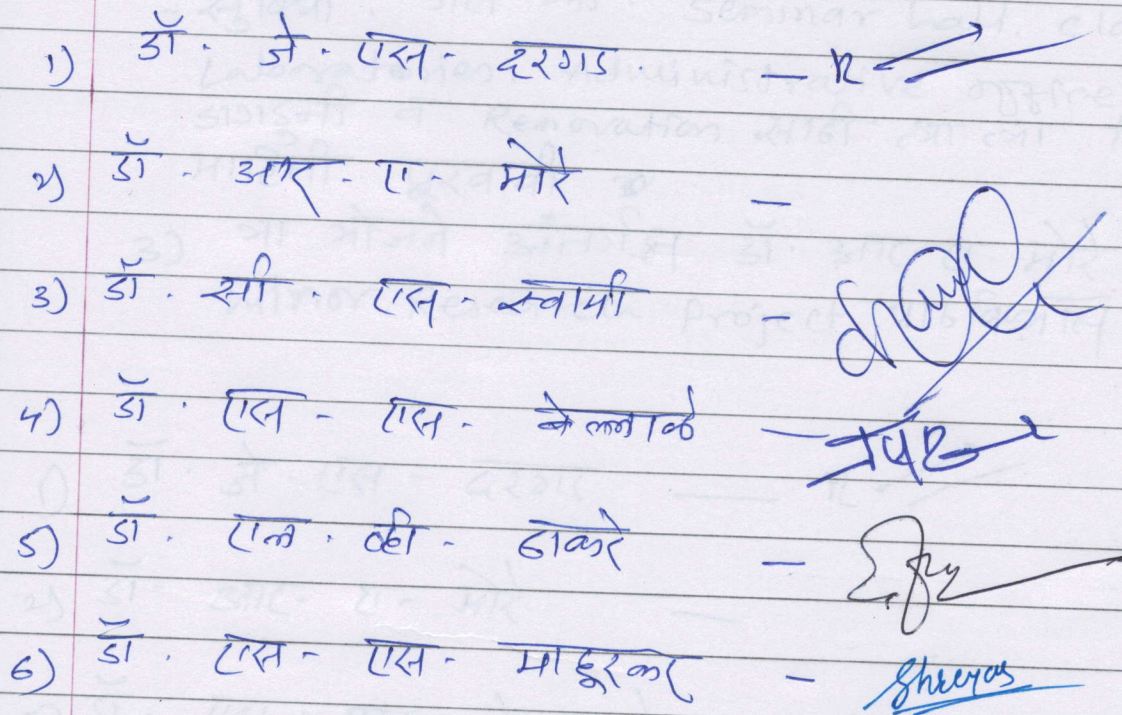 1) डॉ. जे. एस. दरगड. —
2) डॉ. आर. ए. मोरे —
3) डॉ. सी. एस. स्वामी —
4) डॉ. एस. एस. बेल्लाळे —
5) डॉ. एल. व्ही. ठाकरे —
6) डॉ. एस. एस. माहूरकर — Shreyas